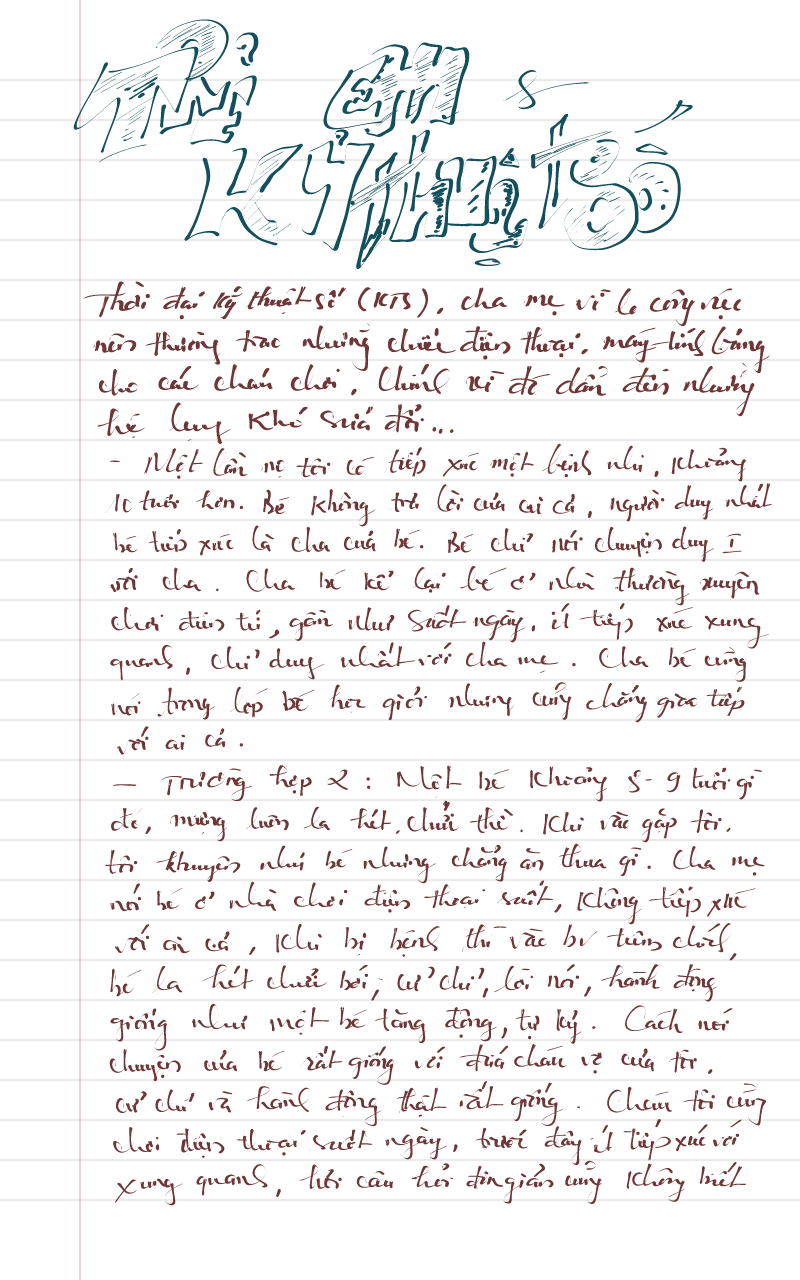 Trẻ em &
Kỹ thuật số
Thời đại kỹ thuật số (KTS), cha mẹ vì lo công việc
nên thường trao những chiếc điện thoại, máy tính bảng
cho các cháu chơi, chính vì đó dẫn đến những
hệ lụy khó sửa đổi...
- Một lần nọ tôi có tiếp xúc một bệnh nhi, khoảng
10 tuổi hơn. Bé không trả lời của ai cả, người duy nhất
bé tiếp xúc là cha của bé. Bé chỉ nói chuyện duy I
với cha. Cha bé kể lại bé ở nhà thường xuyên
chơi điện tử, gần như suốt ngày, ít tiếp xúc xung
quanh, chỉ duy nhất với cha mẹ. Cha bé cũng
nói trong lớp bé học giỏi nhưng cũng chẳng giao tiếp
với ai cả.
- Trường hợp 2: Một bé khoảng 8-9 tuổi gì
đó, miệng luôn la hét, chửi thề. Khi vào gặp tôi,
tôi khuyên nhủ bé nhưng chẳng ăn thua gì. Cha mẹ
nói bé ở nhà chơi điện thoại suốt, không tiếp xúc
với ai cả, khi bị bệnh thì vào bv tiêm chích,
bé la hét chửi bới, cử chỉ, lời nói, hành động
giống như một bé tăng động, tự kỷ. Cách nói
chuyện của bé rất giống với đứa cháu vợ của tôi,
cử chỉ và hành động thật rất giống. Cháu tôi cũng
chơi điện thoại suốt ngày, trước đây ít tiếp xúc với
xung quanh, hỏi câu hỏi đơn giản cũng không biết